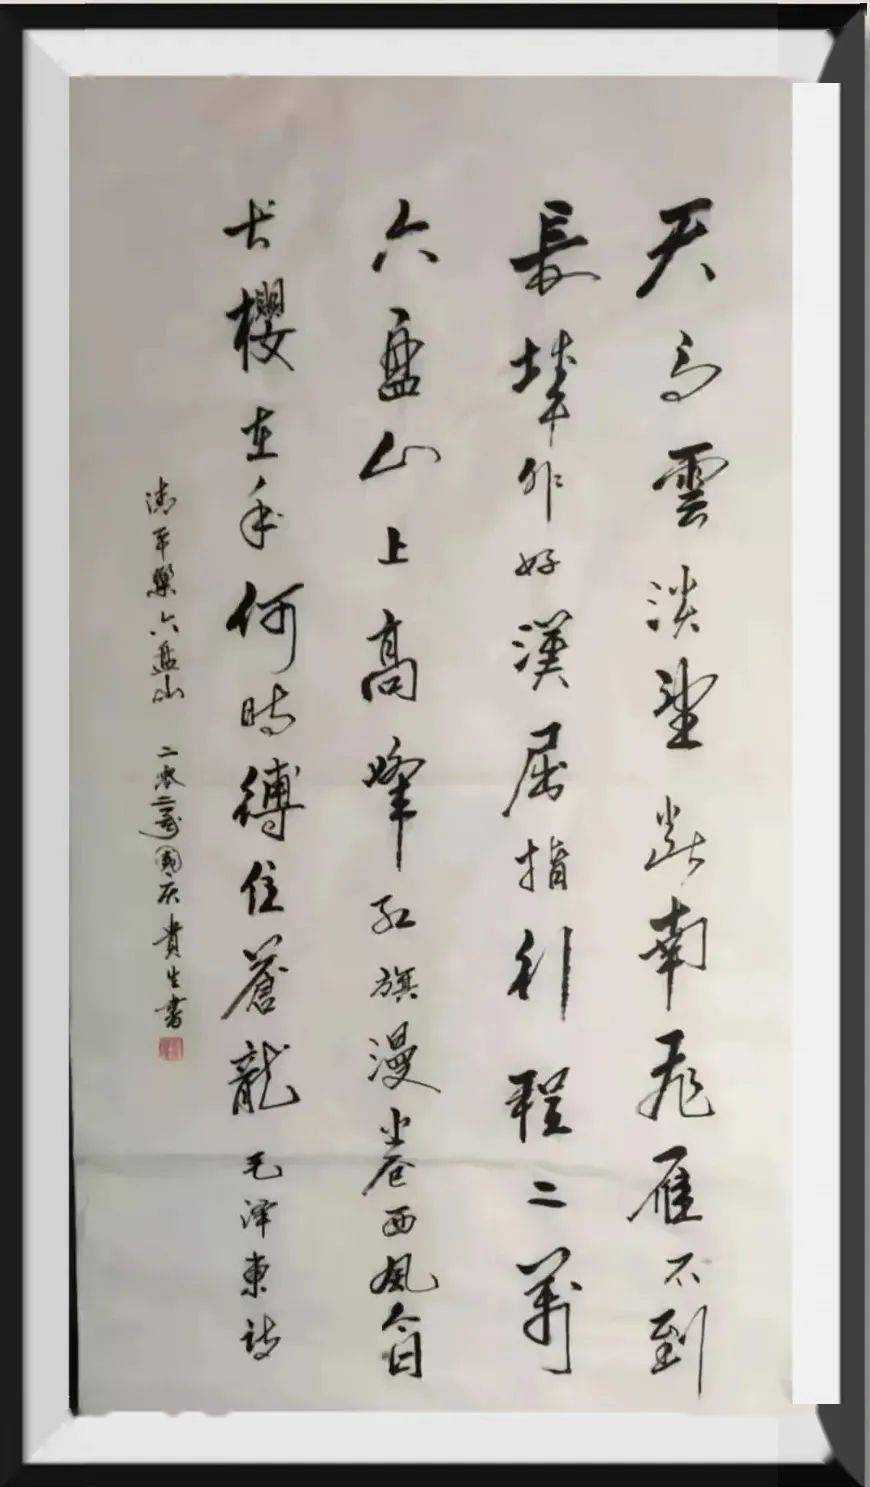 天高雲淡望断南飛雁不到
長城非好漢屈指行程二萬
六盘山上高峰红旗漫卷西風今日
长櫻在手何時縛住蒼龍 毛澤東詩
清平樂六盘山 二零二國庆貴生書